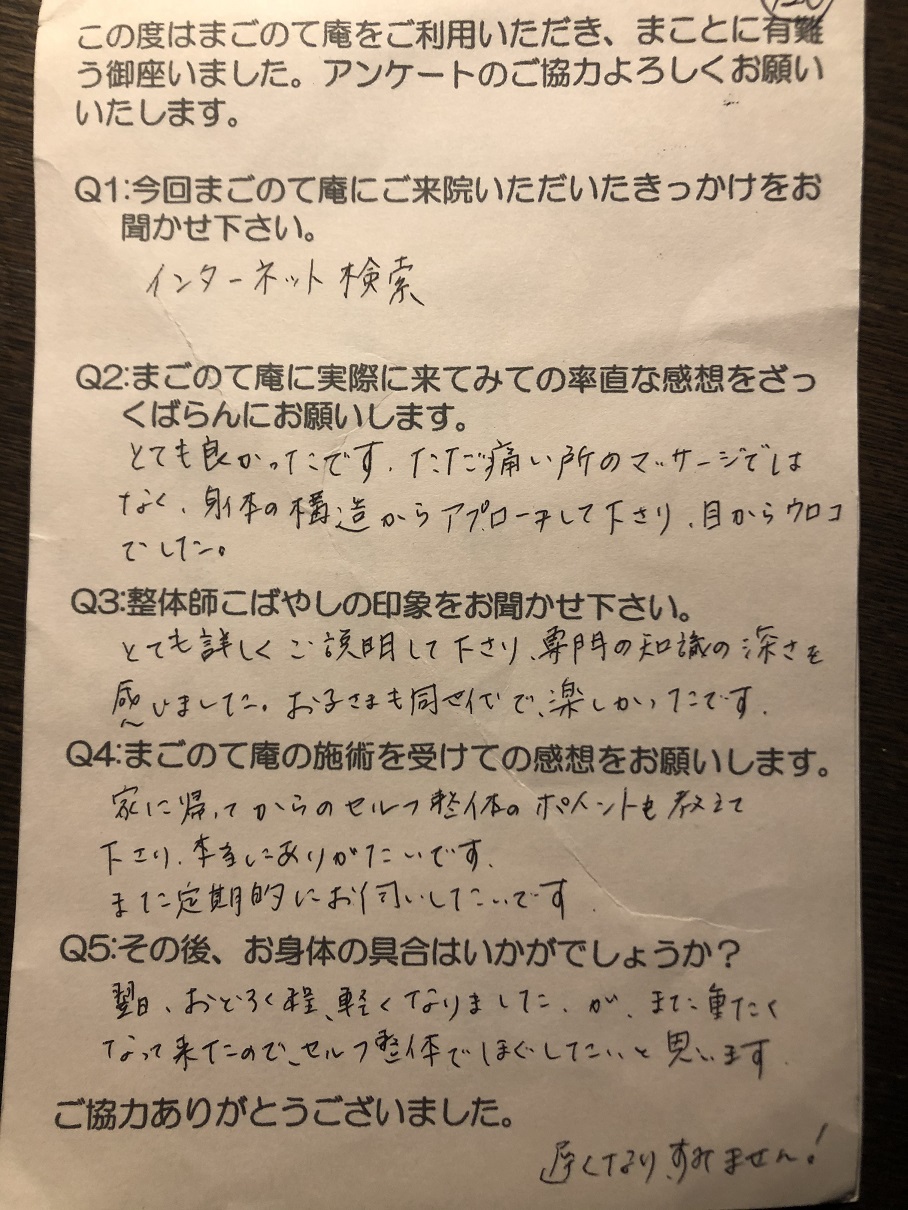 この度はまごのて庵をご利用いただき、まことに有難
う御座いました。アンケートのご協力よろしくお願い
いたします。
Q1:今回まごのて庵にご来院いただいたきっかけをお
聞かせ下さい。
インターネット検索
Q2:まごのて庵に実際に来てみての率直な感想をざっ
くばらんにお願いします。
とても良かったです。ただ痛い所のマッサージでは
なく、身体の構造からアプローチして下さり、目からウロコ
でした。
Q3:整体師こばやしの印象をお聞かせ下さい。
とても詳しくご説明して下さり、専門の知識の深さを
感じました。お子さまも同世代で、楽しかったです。
Q4:まごのて庵の施術を受けての感想をお願いします。
家に帰ってからのセルフ整体のポイントも教えて
下さり、本当にありがたいです。
また定期的にお伺いしたいです。
Q5:その後、お身体の具合はいかがでしょうか？
翌日、おどろく程、軽くなりました、が、また重たく
なって来たので、セルフ整体でほぐしたいと思います。
ご協力ありがとうございました。
遅くなり、すみません!